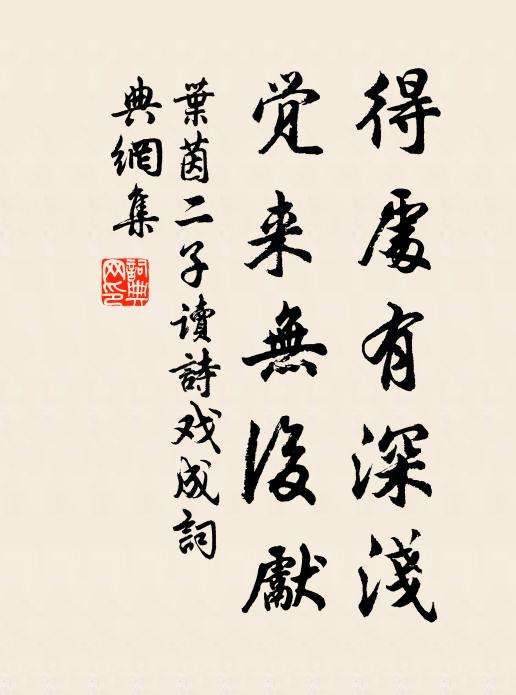 得處有深淺
觉来無後獻
葉茵二子讀詩戏成詞
典網集
詞典
网印